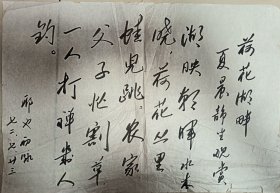 荷花湖畔
夏晨静生观赏
湖映朝晖水未
晓荷花丛里
蛙儿跳农家
父子忙割草
一人打禅几人
钓。
七二、七、廿三